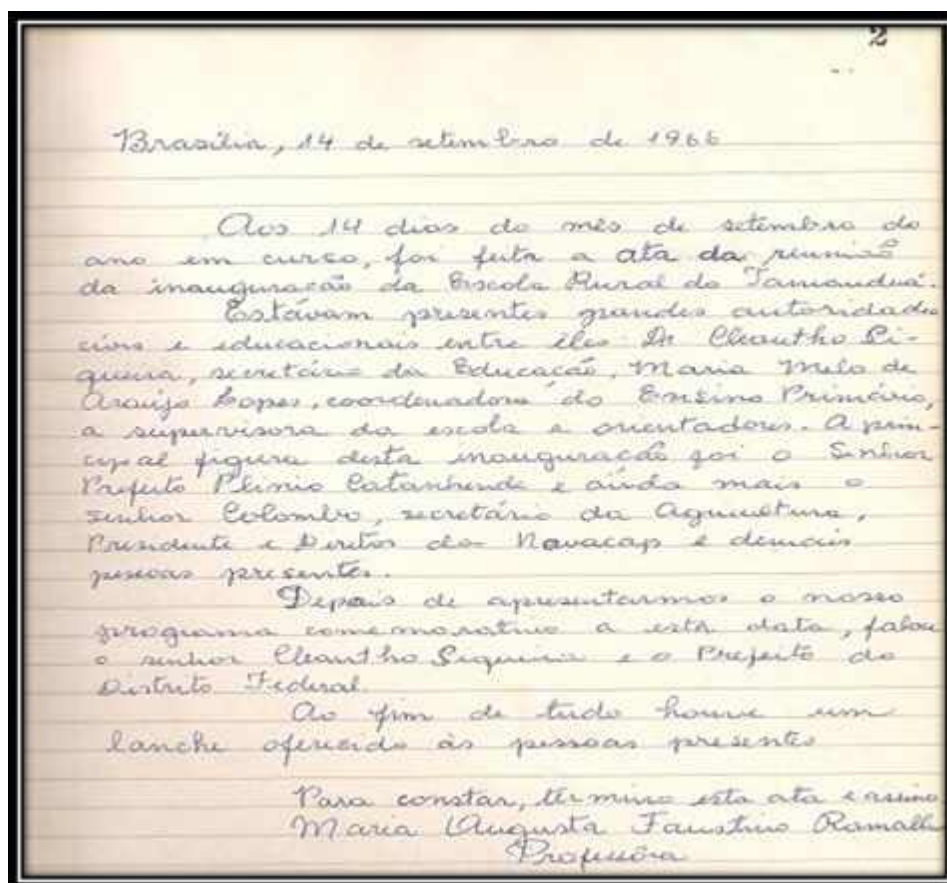 2
Brasília, 14 de setembro de 1966
Aos 14 dias do mês de setembro do
ano em curso, foi feita a ata da reunião
da inauguração da Escola Rural do Tamanduá.
Estávam presentes grandes autoridades
civis e educacionais entre êles Dr Cleantho Si-
queira, secretário da Educação, Maria Melo de
Araujo Lopes, coordenadora do Ensino Primário,
a supervisora da escola e orientadores. A prin-
cipal figura desta inauguração foi o Senhor
Prefeito Plinio Catanhende e ainda mais o
senhor Colombo, secretário da Agricultura,
Presidente e Diretor da Novacap e demais
pessoas presentes.
Depois de apresentarmos o nosso
programa comemorativo a esta data, falou
o senhor Cleantho Siqueira e o Prefeito do
Distrito Federal.
Ao fim de tudo houve um
lanche oferecido às pessoas presentes
Para constar, termino esta ata e assino
Maria Augusta Faustino Ramalho
Professôra